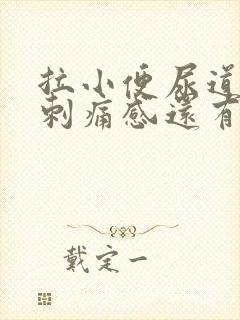 拉小便尿道
刺痛感還有
戴定一